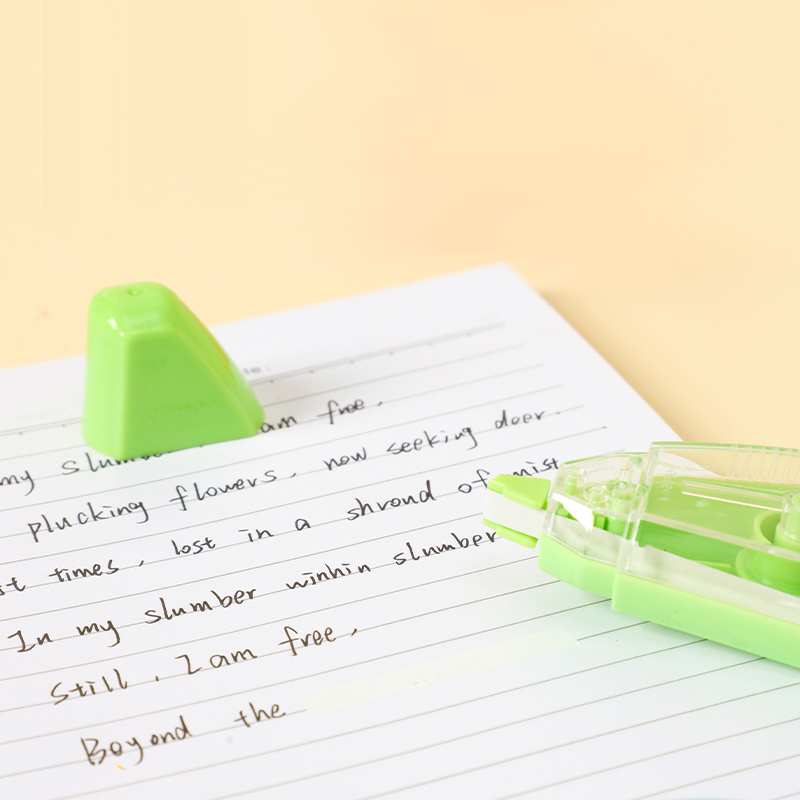 am free,
my slumber
plucking flowers, now seeking deer.
st times, lost in a shroud of mist
In my slumber winhin slumber
Still, I am free,
Beyond the